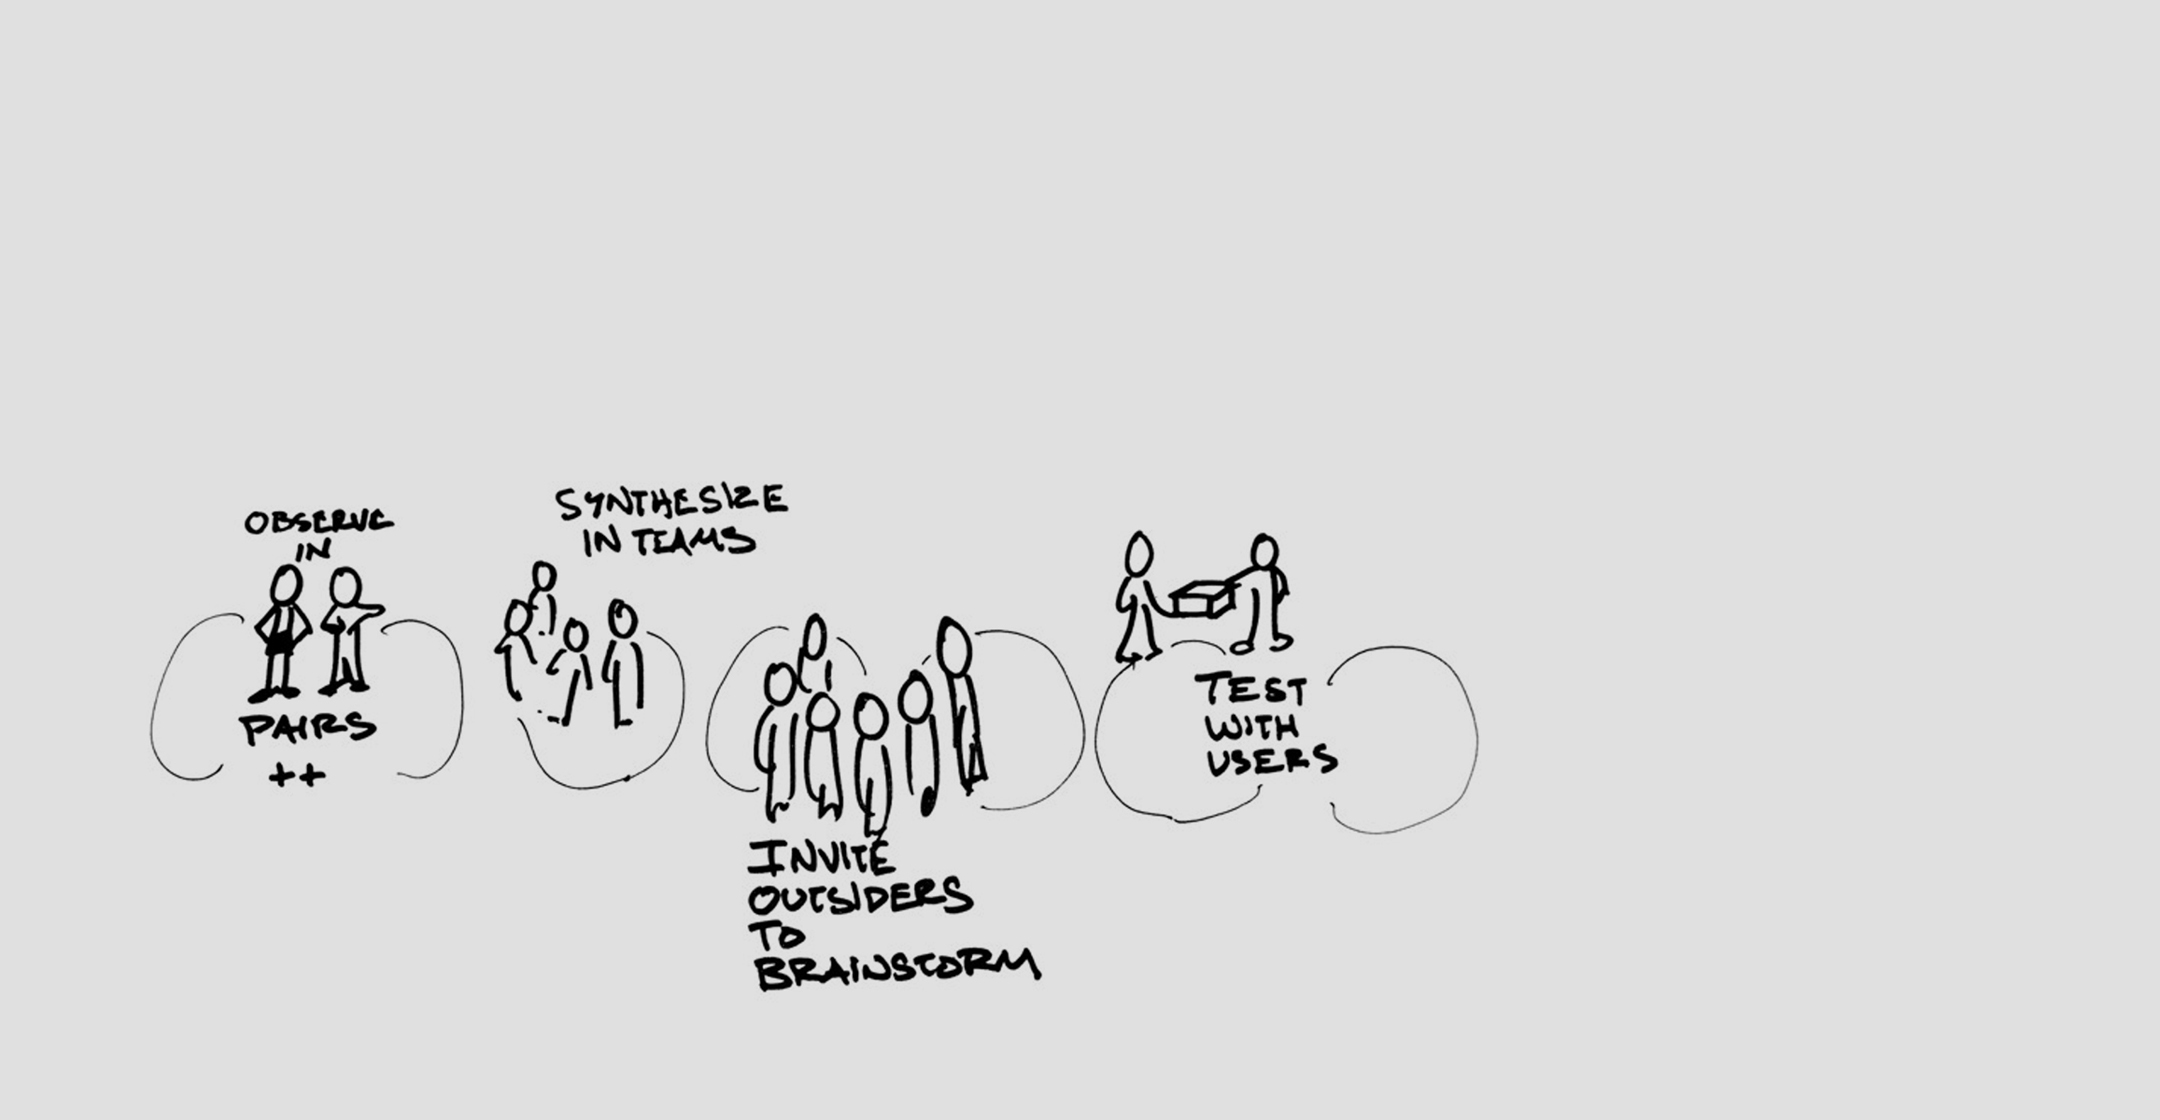 OBSERVE
IN
PAIRS
++
SYNTHESIZE
IN TEAMS
INVITE
OUTSIDERS
TO
BRAINSTORM
TEST
WITH
USERS